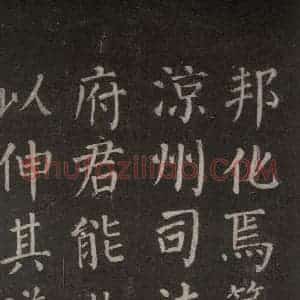 邦化焉
涼州司
府君能
以伸其
shufaziliao.com